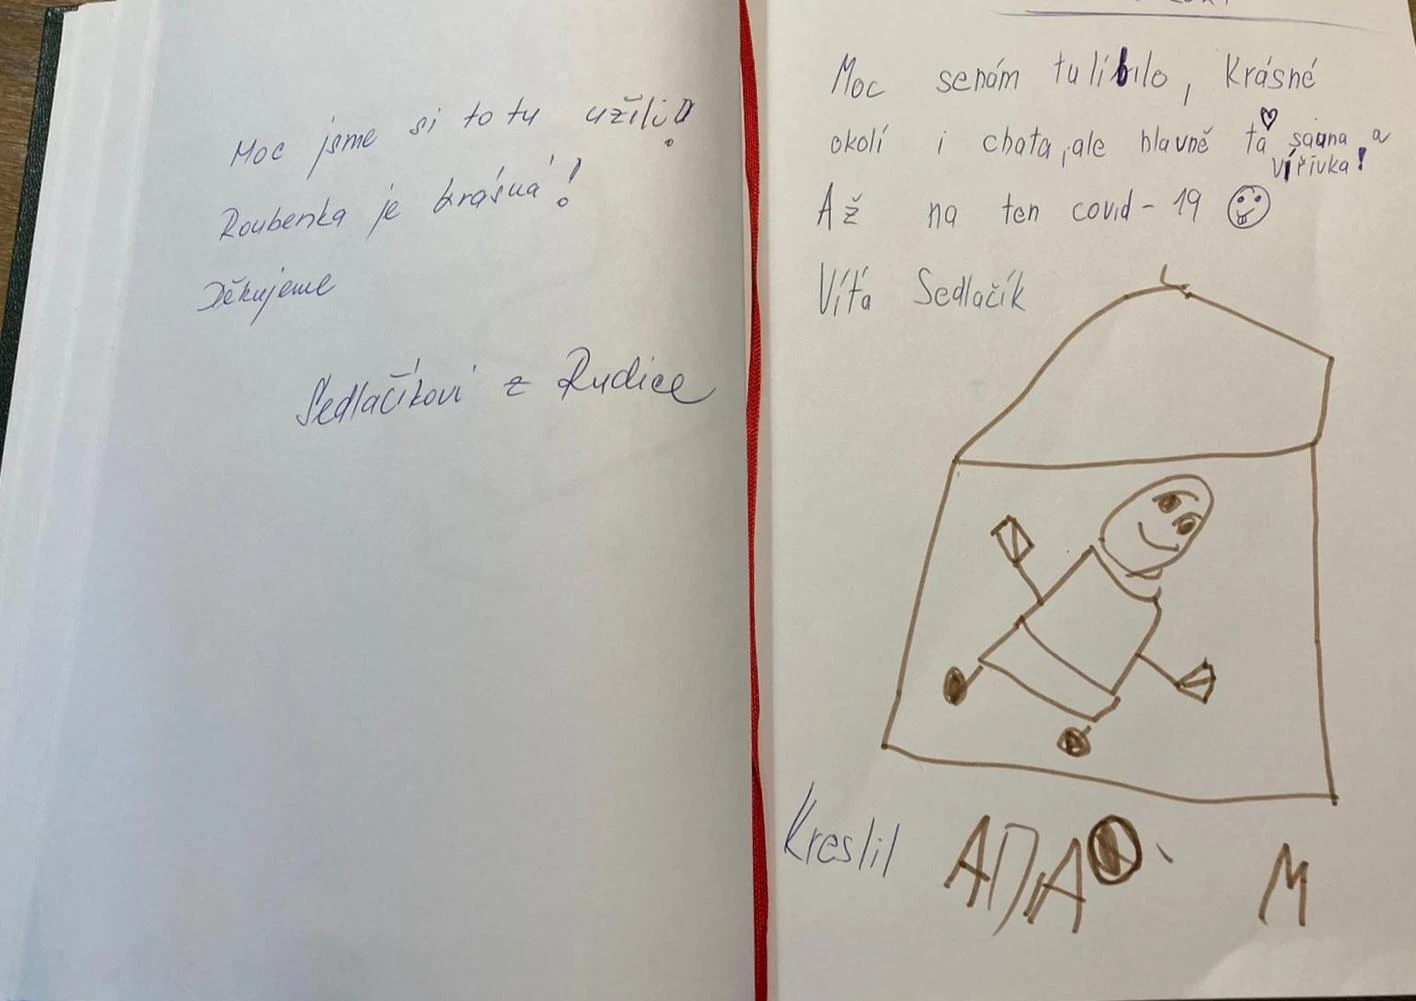 Moc jsme si to tu užili!
Roubenka je krásná!
Děkujeme
Sedlačíkovi z Rudice
Moc senám tulíbilo, Krásné
okolí i chata, ale hlavně ta sauna, a
vířivka!
Až na ten covid-19
Víťa Sedlačík
Kreslil ADA M